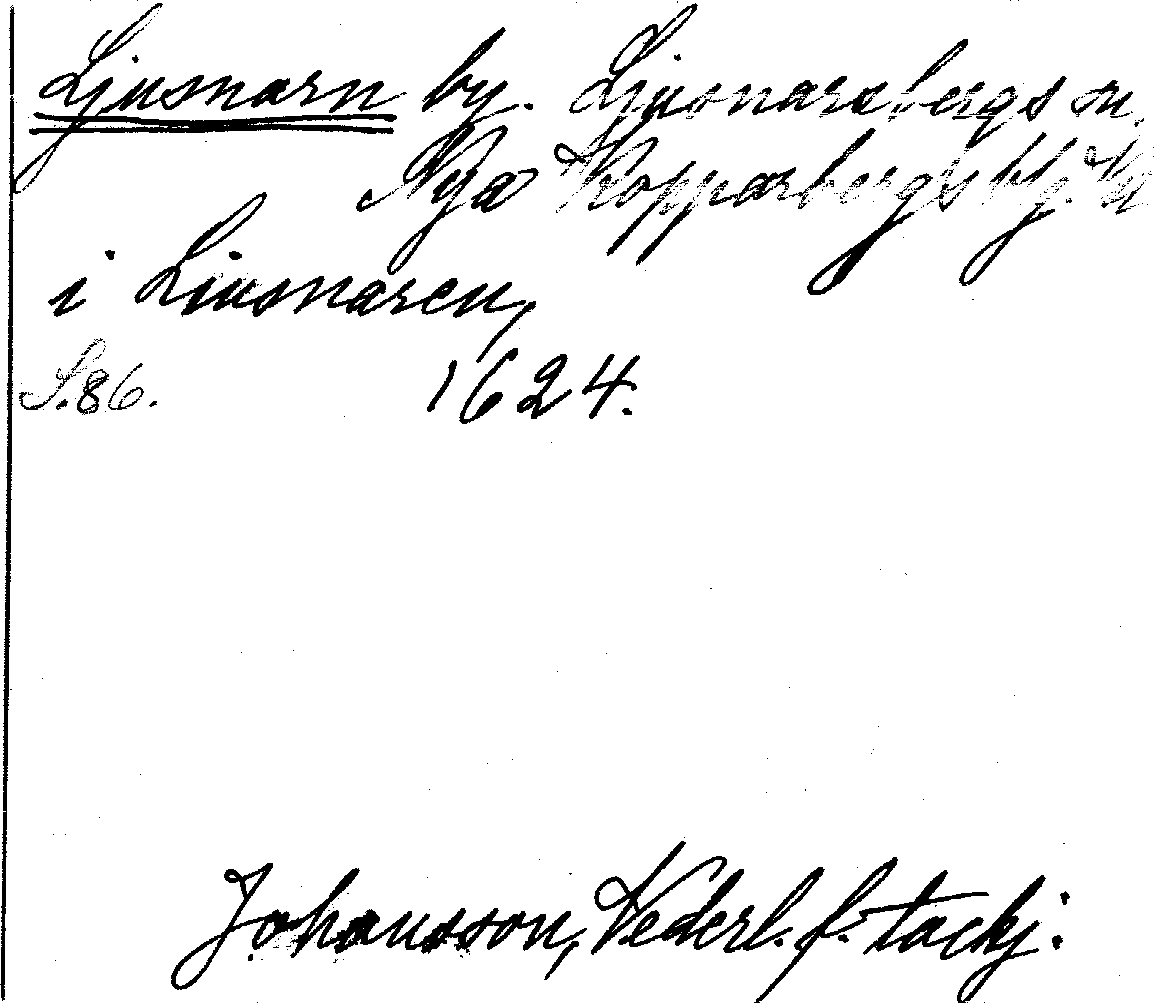 Ljusnarn by. Ljusnarsbergs sn.
Nya Kopparbergs blg.
i Liusnaren,
S.86. 1624.
Johansson, Vederl. f. tackj.